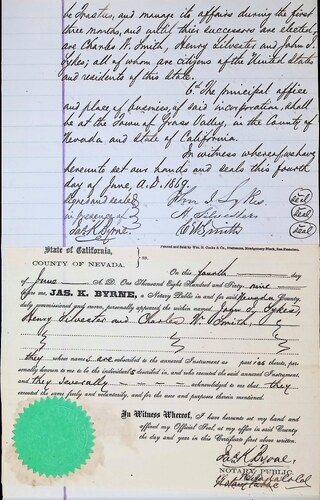 be Trustees, and manage its affairs during the first
three months, and until their successors are elected
are Charles W. Smith, Henry Silvester and John S.
Sykes; all of whom are citizens of the United States
and residents of this State.
6th The principal office
and place of business, of said incorporation, shall
be at the Town of Grass Valley, in the County of
Nevada and State of California.
In witness whereof we have
hereunto set our hands and seals this fourth
day of June, A.D. 1869.
Signed and sealed
in presence of
Jas K Byrne
Sykes (seal)
H Silvester (seal)
C W Smith (seal)
State of California,
COUNTY OF NEVADA. } ss.
On this fourth day
of June A. D. One Thousand Eight Hundred and Sixty nine
before me, JAS. K. BYRNE, a Notary Public in and for said Nevada County,
duly commissioned and sworn, personally appeared the within named John S. Sykes,
Henry Silvester and Charles W. Smith,
they whose names are subscribed to the annexed Instrument as parties thereto, personally
known to me to be the individuals described in, and who executed the said annexed Instrument,
and they severally - - - - - acknowledged to me that they
executed the same freely and voluntarily, and for the uses and purposes therein mentioned.
In Witness Whereof, I have hereunto set my hand and
affixed my Official Seal, at my office in said County
the day and year in this Certificate first above written.
Jas K Byrne,
NOTARY PUBLIC.
Notary Public